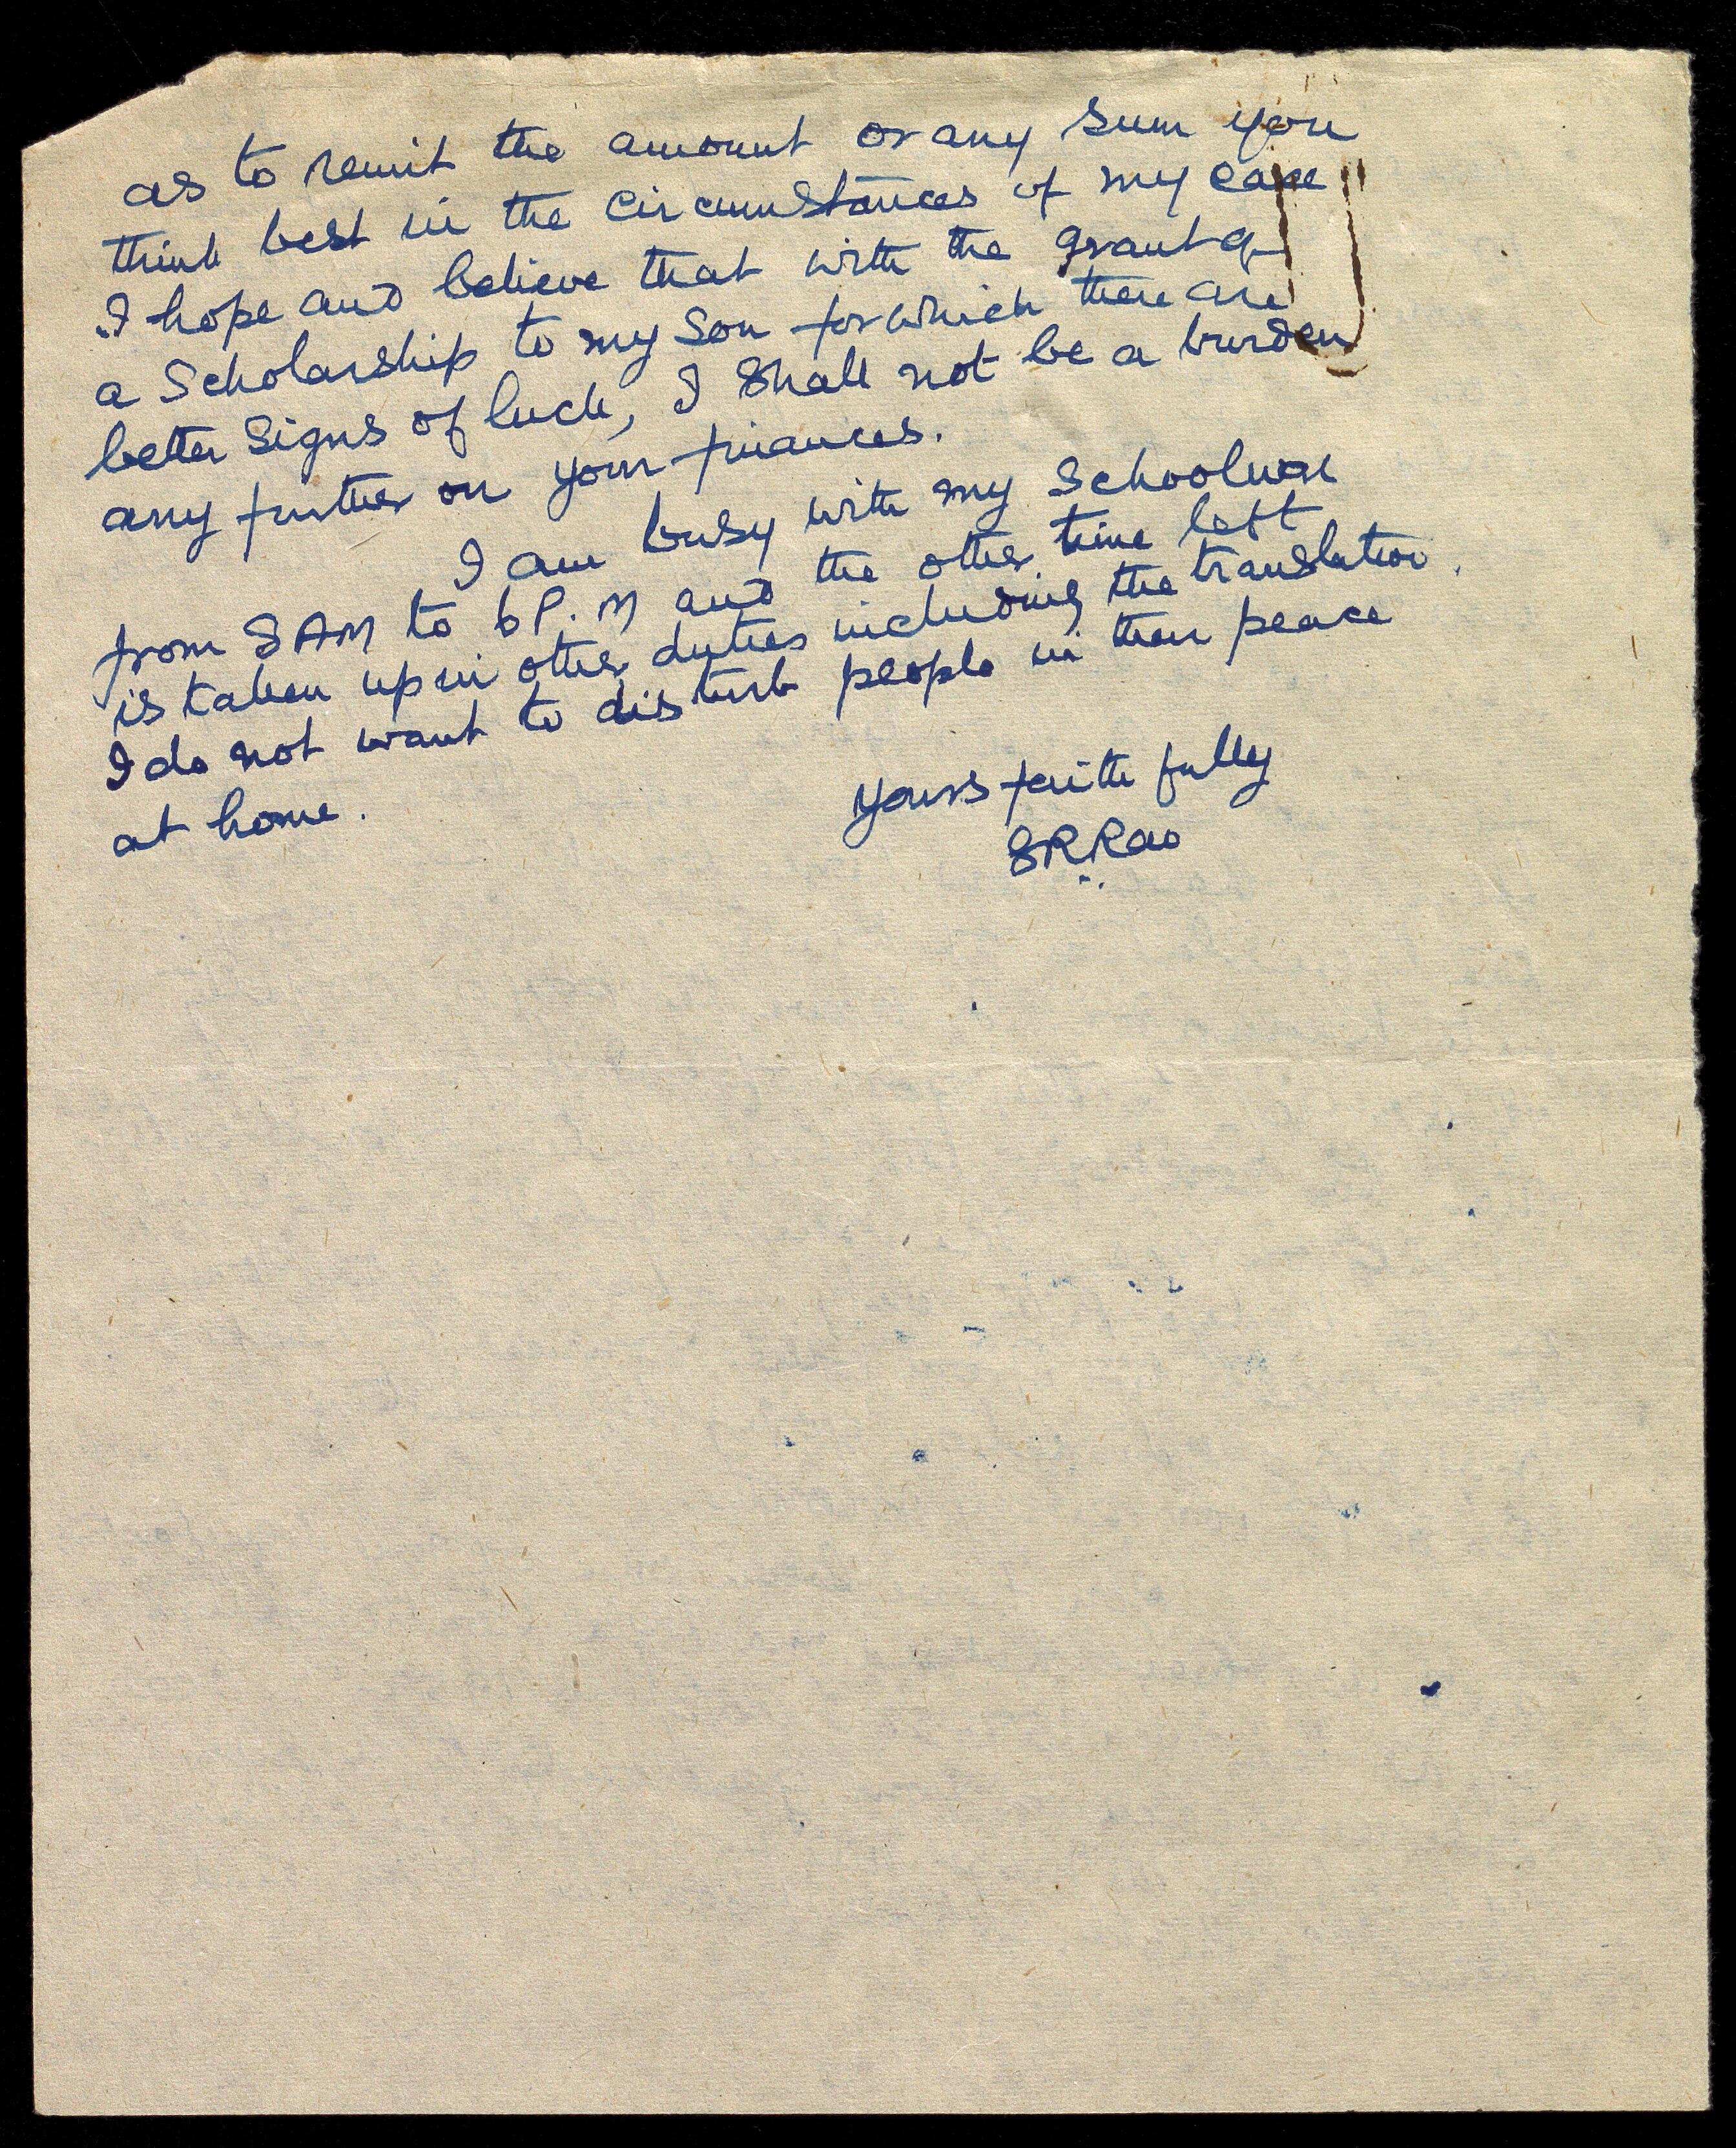 as to remit the amount or any sum you
think best in the circumstances of my case
I hope and believe that with the grant of
a Scholarship to my Son for which there are
better Signs of luck, I Shall not be a burden
any further on your finances.
I am busy with my Schoolwork
from 8 AM to 6 P. M and the other time left
is taken up in other duties including the translation.
I do not want to disturb people in their peace
at home.
Yours faithfully
S R Rao